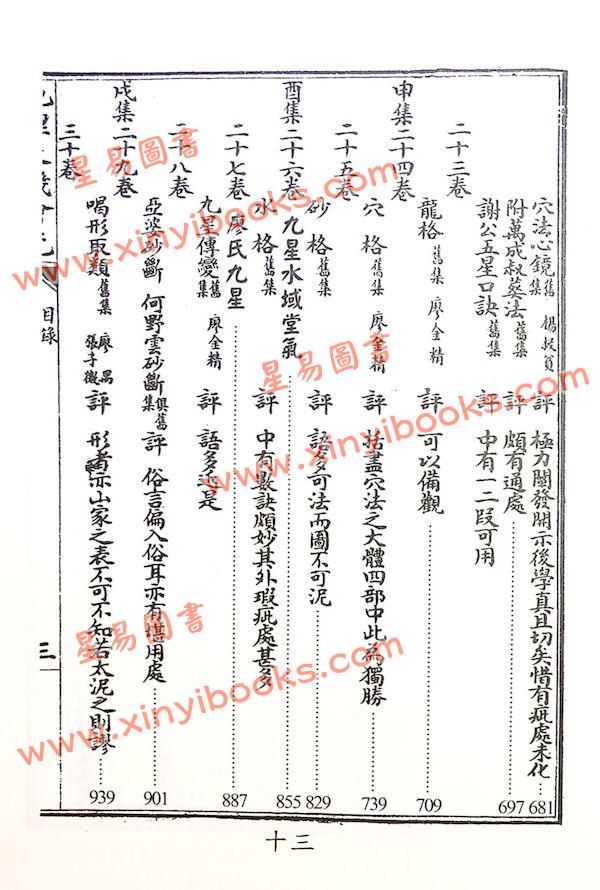 穴法心鏡 舊集 楊叔 評 極力闡發開示後學真且切矣惜有疵處未化 681
附萬成叔葵法 舊集 評 頗有通處 697
謝公五星口訣 舊集 評 中有一二段可用
二十三卷
龍格 舊集 廖金精 評 可以備觀 709
申集二十四卷
穴格 舊集 廖金精 評 括盡穴法之大體四部中此為獨勝 739
二十五卷
砂格 舊集 評 語多可法而圖不可泥 829
酉集二十六卷 九星水域堂氣 855
水格 舊集 評 中有數訣頗妙其外瑕疵處甚多
二十七卷 廖氏九星 887
九星傳變 舊集 廖金精 評 語多近是
二十八卷
亞婆砂斷 何野雲砂斷 俱舊集 評 俗言偏入俗耳亦有堪用處 901
戌集二十九卷
喝形取類 舊集 廖禹 張子微 評 形者亦山家之表不可不知若太泥之則謬 939
三十卷
目錄
三
十三
星易圖書
www.xinyibooks.com
星易圖書
www.xinyibooks.com
星易圖書
www.xinyibooks.com